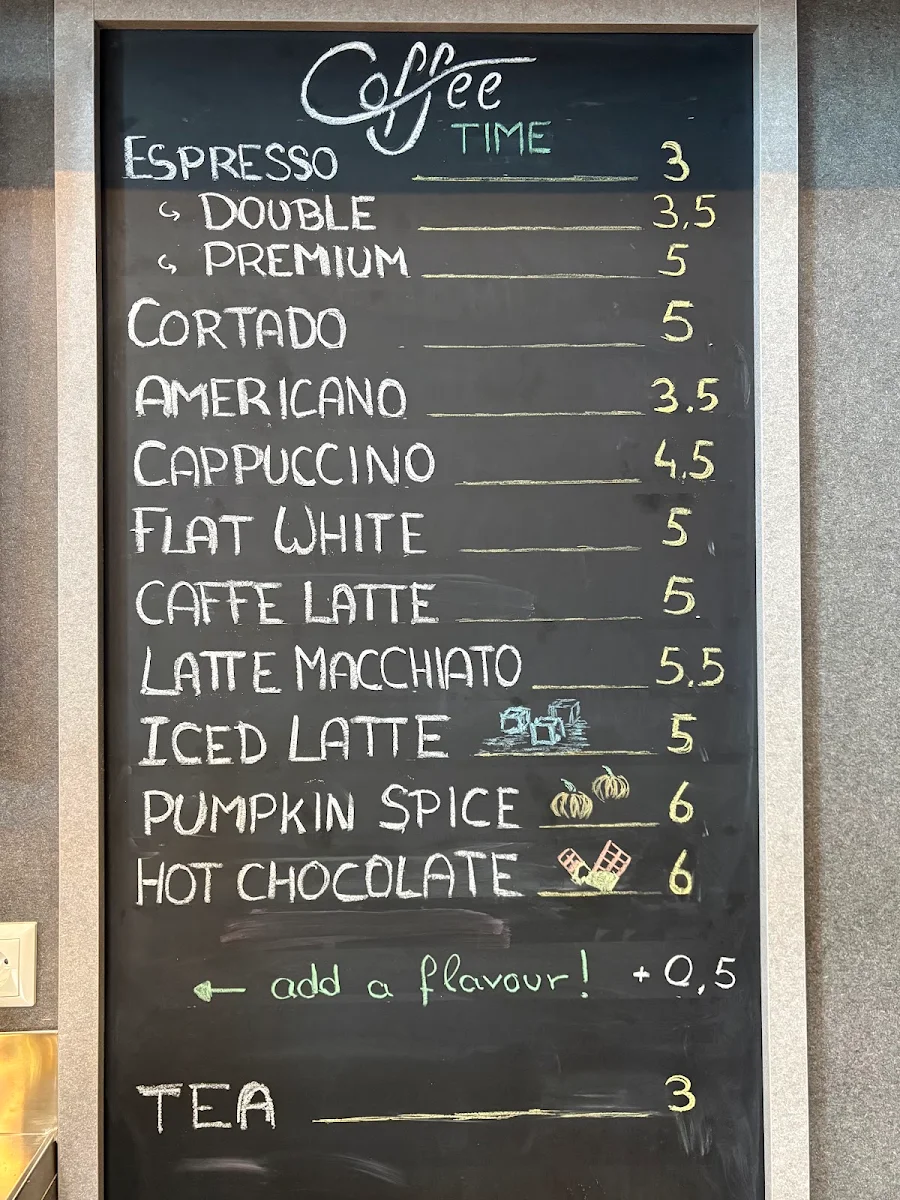 Coffee
TIME
ESPRESSO 3
DOUBLE 3,5
PREMIUM 5
CORTADO 5
AMERICANO 3.5
CAPPUCCINO 4,5
FLAT WHITE 5
CAFFE LATTE 5
LATTE MACCHIATO 5,5
ICED LATTE 5
PUMPKIN SPICE 6
HOT CHOCOLATE 6
← add a flavour! +0,5
TEA 3